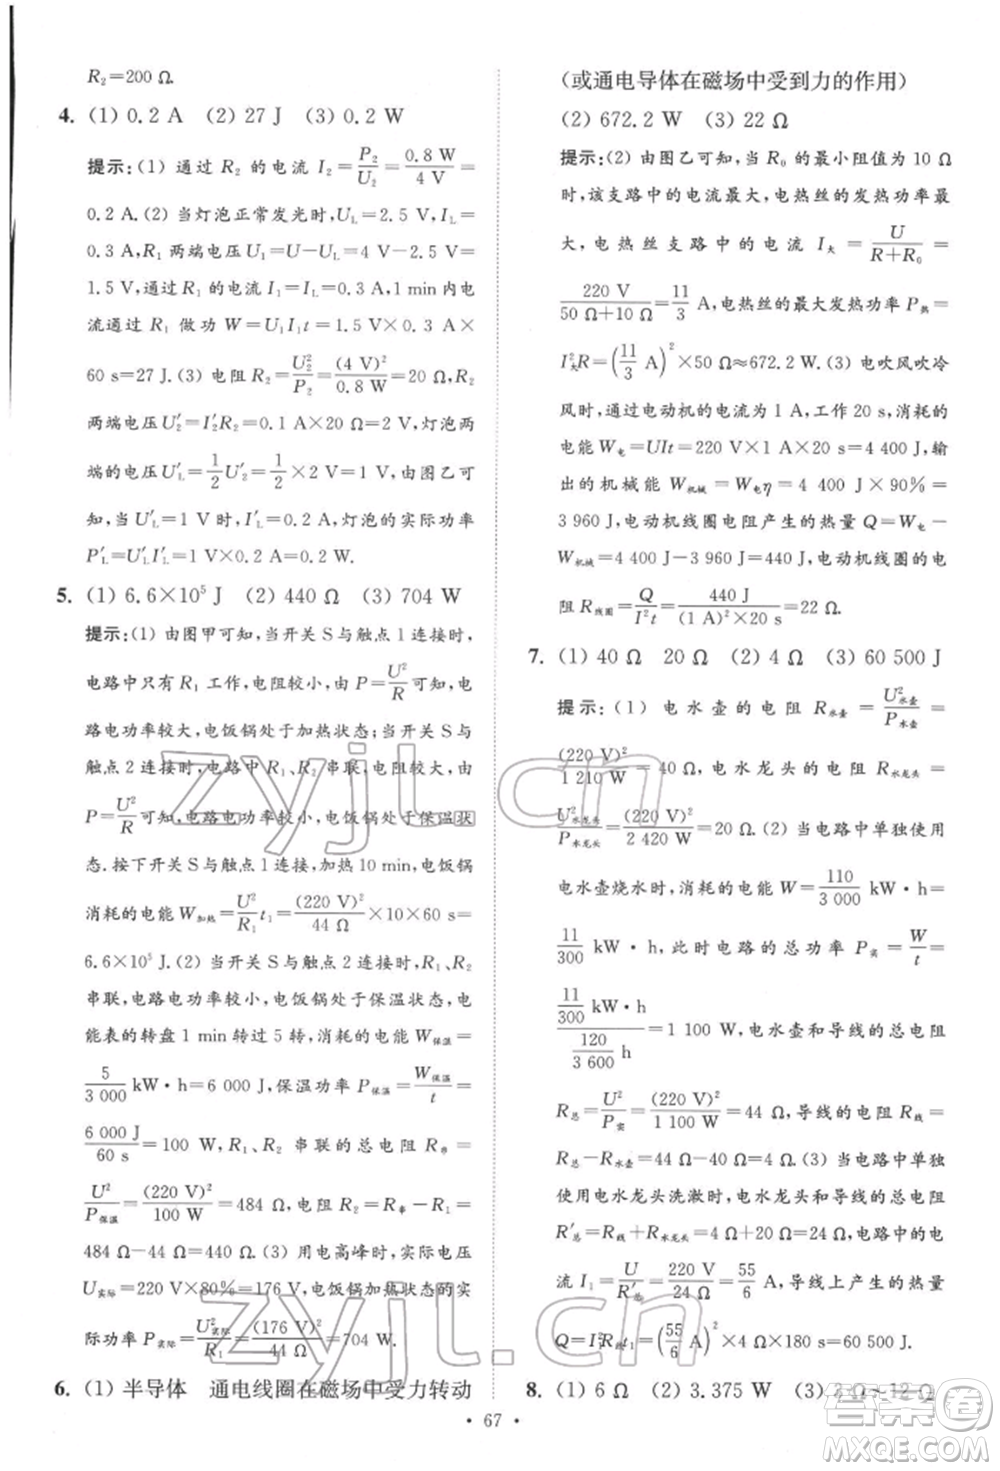 R₂=200 Ω.
4. (1) 0.2 A (2) 27 J (3) 0.2 W
提示:(1) 通过 R₂ 的电流 I₂=P₂/U₂=0.8 W/4 V=
0.2 A.(2) 当灯泡正常发光时,U_L=2.5 V,I_L=
0.3 A,R₁ 两端电压 U₁=U－U_L=4 V－2.5 V=
1.5 V,通过 R₁ 的电流 I₁=I_L=0.3 A,1 min 内电
流通过 R₁ 做功 W=U₁I₁t=1.5 V×0.3 A×
60 s=27 J.(3) 电阻 R₂=U₂²/P₂=(4 V)²/0.8 W=20 Ω,R₂
两端电压 U₂′=I₂′R₂=0.1 A×20 Ω=2 V,灯泡两
端的电压 U_L′=1/2 U₂′=1/2×2 V=1 V,由图乙可
知,当 U_L′=1 V时,I_L′=0.2 A,灯泡的实际功率
P_L′=U_L′I_L′=1 V×0.2 A=0.2 W.
5. (1) 6.6×10⁵ J (2) 440 Ω (3) 704 W
提示:(1) 由图甲可知,当开关 S 与触点 1 连接时,
电路中只有 R₁ 工作,电阻较小,由 P=U²/R可知,电
路电功率较大,电饭锅处于加热状态;当开关 S 与
触点 2 连接时,电路中 R₁、R₂ 串联,电阻较大,由
P=U²/R可知,电路电功率较小,电饭锅处于保温状
态.按下开关 S 与触点 1 接触,加热 10 min,电饭锅
消耗的电能 W加热=U²/R₁ t₁=(220 V)²/44 Ω×10×60 s=
6.6×10⁵ J.(2) 当开关 S 与触点 2 连接时,R₁、R₂
串联,电路电功率较小,电饭锅处于保温状态,电
能表的转盘 1 min 转过 5 转,消耗的电能 W保温=
5/3 000 kW·h=6 000 J,保温功率 P保温=W保温/t=
6 000 J/60 s=100 W,R₁、R₂ 串联的总电阻 R串=
U²/P保温=(220 V)²/100 W=484 Ω,电阻 R₂=R串－R₁=
484 Ω－44 Ω=440 Ω.(3) 用电高峰时,实际电压
U实际=220 V×80%=176 V,电饭锅加热状态的实
际功率 P实际=U实际²/R₁=(176 V)²/44 Ω=704 W.
6. (1) 半导体 通电线圈在磁场中受力转动
(或通电导体在磁场中受到力的作用)
(2) 672.2 W (3) 22 Ω
提示:(2) 由图乙可知,当 R₀ 的最小阻值为 10 Ω
时,该支路中的电流最大,电热丝的发热功率最
大,电热丝支路中的电流 I大=U/(R+R₀)=
220 V/(50 Ω+10 Ω)=11/3 A,电热丝的最大发热功率 P热=
I大²R=(11/3 A)²×50 Ω≈672.2 W.(3) 电吹风吹冷
风时,通过电动机的电流为 1 A,工作 20 s,消耗的
电能 W电=UIt=220 V×1 A×20 s=4 400 J,输
出的机械能 W机械=W电η=4 400 J×90%=
3 960 J,电动机线圈电阻产生的热量 Q=W电－
W机械=4 400 J－3 960 J=440 J,电动机线圈的电
阻 R线圈=Q/I²t=440 J/((1 A)²×20 s)=22 Ω.
7. (1) 40 Ω 20 Ω (2) 4 Ω (3) 60 500 J
提示:(1) 电水壶的电阻 R水壶=U水壶²/P水壶=
(220 V)²/1 210 W=40 Ω,电水龙头的电阻 R水龙头=
U水龙头²/P水龙头=(220 V)²/2 420 W=20 Ω.(2) 当电路中单独使用
电水壶烧水时,消耗的电能 W=110/3 000 kW·h=
11/300 kW·h,此时电路的总功率 P实=W/t=
(11/300 kW·h)/(120/3 600 h)=1 100 W,电水壶和导线的总电阻
R总=U²/P实=(220 V)²/1 100 W=44 Ω,导线的电阻 R线=
R总－R水壶=44 Ω－40 Ω=4 Ω.(3) 当电路中单独
使用电水龙头洗漱时,电水龙头和导线的总电阻
R总′=R线+R水龙头=4 Ω+20 Ω=24 Ω,电路中的电
流 I₁=U/R总′=220 V/24 Ω=55/6 A,导线上产生的热量
Q=I₁²R线t₁=(55/6 A)²×4 Ω×180 s=60 500 J.
8. (1) 6 Ω (2) 3.375 W (3) 2 Ω~12 Ω
• 67 •
zyjl.cn
zyjl.cn
答案圈
MXQE.COM